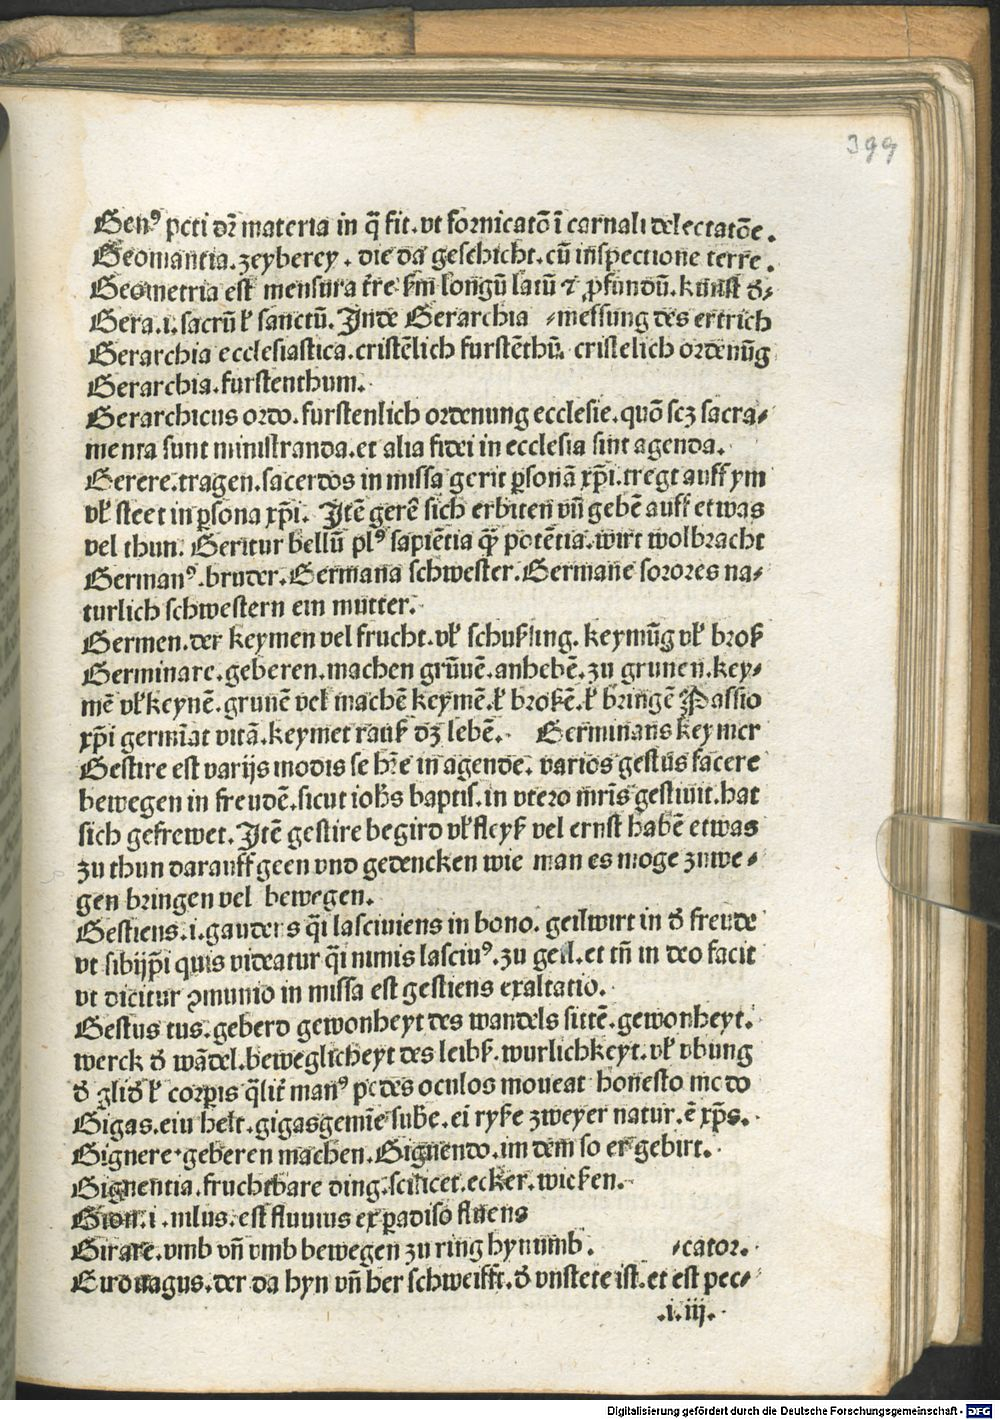 399
Genꝰ pcti dr̄ materia in q̄ fit. vt fornicatō ī carnali delectatōe.
Geomantia. zeyberey. die da geschicht. cū inspectione terre.
Geometria est mensura tr̄e fm longū latū ⁊ ꝓfundū. kunst d̄⸗
Gera. i. sacrū ł sanctū. Inde Gerarchia ⸗messung des ertrich
Gerarchia ecclesiastica. cristēlich furstēthū. cristelich ordenūg
Gerarchia. furstenthum.
Gerarchicus ordo. furstenlich ordenung ecclesie. quō scz sacra⸗
menta sunt ministranda. et alia fidei in ecclesia sint agenda.
Gerere. tragen. sacerdos in missa gerit ꝑsonā xp̄i. tregt auff ym
vł steet in ꝑsona xp̄i. Itē gerē sich erbiten vn̄ gebē auff etwas
vel thun. Geritur bellū plꝰ sapiētia qꝫ̄ potētia. wirt wolbracht
Germanꝰ. bruder. Germana schwester. Germane sorores na⸗
turlich schwestern ein mutter.
Germen. der keymen vel frucht. vł schußling. keymūg vł broß
Germinare. geberen. machen grūnē. anhebē. zu grunen. key⸗
mē vł keynē. grunē vel machē keymē. ł broßē. ł bringē Passio
xp̄i germīat vitā. keymet rauß dz lebē. Germinans keymer
Gestire est varijs modis se hr̄e in agende. varios gestus facere
bewegen in freudē. sicut iohs̄ baptis. in vtero mr̄is gestiuit. hat
sich gefrewet. Itē gestire begird vł fleyß vel ernst habē etwas
zu thun darauff geen vnd gedencken wie man es moge zuwe⸗
gen bringen vel bewegen.
Gestiens. i. gaudens q̄i lasciuiens in bono. geilwirt in d̄ freude
vt sibijp̄i quis videatur q̄i nimis lasciuꝰ. zu geil. et tn̄ in deo facit
vt dicitur ꝯmunio in missa est gestiens exaltatio.
Gestus tus. geberd gewonheyt des wandels sittē. gewonheyt.
werck d̄ wādel. beweglicheyt des leibß. wurlichkeyt. vł vbung
d̄ glid̄ ł corꝑis q̄lit̄ manꝰ pedes oculos moueat honesto modo
Gigas. ein helt. gigas gemīe sub̄e. ei ryße zweyer natur. ē xp̄s.
Gignere. geberen machen. Gignendo. im dem so er gebirt.
Gignentia. fruchtbare ding. scilicet. ecker. wicken.
Gion. i. nilus. est fluuius ex ꝑadiso fluens
Girare. vmb vn̄ vmb bewegen zu ring hynumb. ⸗cator.
Girouagus. der da hyn vn̄ her schweifft. d̄ vnstete ist. et est pec⸗
.i. iij.
Digitalisierung gefördert durch die Deutsche Forschungsgemeinschaft - DFG